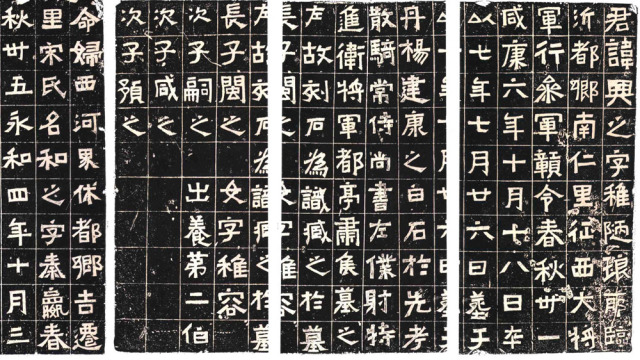 君諱興之字稚陋琅耶臨
沂都鄉南仁里征西大將
軍行參軍贛令春秋卅一
咸康六年十月十八日卒
以七年七月廿六日葬于
丹楊建康之白石於先考
散騎常侍尚書左僕射特
進衛將軍都亭肅侯墓之
左故刻石為識臧之於墓
左故刻石為識臧之於墓
長子閩之 女字稚容
次子嗣之 出養第二伯
次子咸之
次子預之
命婦西河界休都鄉吉遷
里宋氏名和之字秦嬴春
秋卅五永和四年十月三